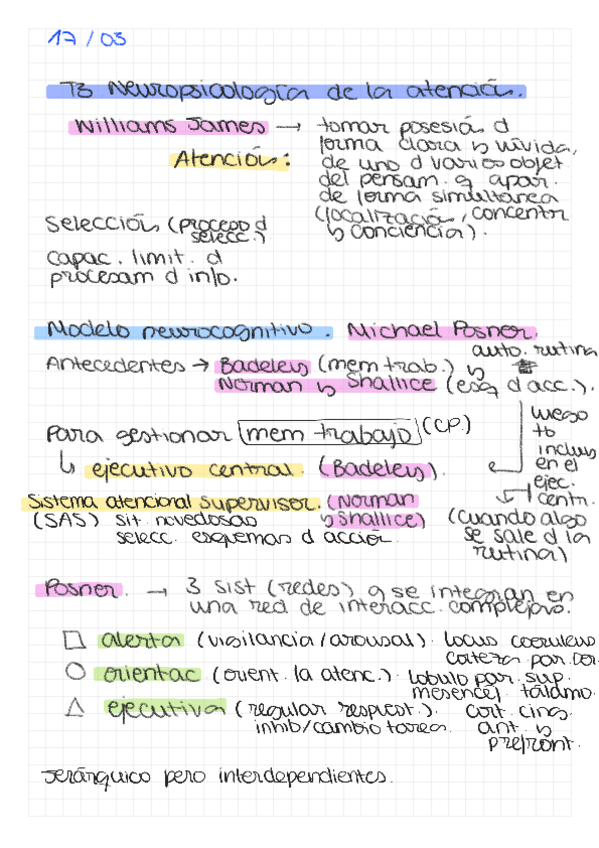 17/03
T3 Neuropsicología de la atención.
Williams James → tomar posesión d
forma clara y vívida,
Atención: de uno d varios objet
del pensam. q apar.
de forma simultánea
(localización, concentr
y conciencia).
Selección (proceso d
selecc.)
capac. limit. d
procesam d info.
Modelo neurocognitivo. Michael Posner.
Antecedentes → Badeley (mem trab.) y
Norman y Shallice (esq d acc.).
auto. rutina
luego
tb
incluy
en el
ejec.
centr.
Para gestionar mem trabajo (CP.)
↳ ejecutivo central. (Badeley).
Sistema atencional supervisor. (Norman
y Shallice)
(SAS) sit. novedosas
selecc. esquemas d acción.
(cuando algo
se sale d la
rutina)
Posner. → 3 sist (redes) q se integran en
una red de interacc. complejas.
□ alerta (vigilancia/arousal). locus coeruleus
corteza par. der.
○ orientac (orient. la atenc.). lóbulo par. sup.
mesencef. tálamo.
△ ejecutiva (regular respuest.). cort. cing.
inhib/cambio tarea. ant. y
prefront.
Jerárquico pero interdependientes.